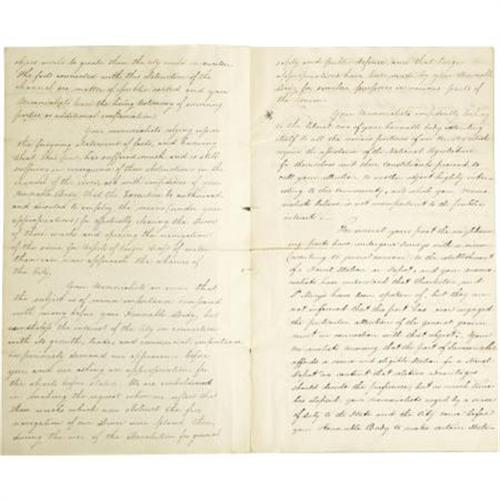 object would be greater than the city could in
The facts connected with this obstruction of the
channel are matter of public record and your
Memorialists have the living testimony of surviving
parties as additional confirmation.
Your memorialists relying upon
the foregoing statement of facts, and knowing
that this port has suffered much and is still
suffering in consequence of these obstructions in the
channel of the river, ask with of your
Honorable Body that the Executive be authorized
and directed to employ the means, under your
appropriations, for effectually clearing the River
of these wrecks and opening the navigation
of the same for vessels of larger draft of water
than can now approach the wharves of
the City.
Your Memorialists are aware that
the subject is of minor importance compared
with many before your Honorable Body, but
the interest of the City in connection
with its growth, trade, and commercial
imperiously demand our appearance before
you and our asking an appropriation for
the objects before stated. We are emboldened
in making the request when we reflect that
these wrecks which now obstruct the free
navigation of our River were placed there
during the war of the Revolution for general
safety and public defence, and that large
appropriations have been made by your Honorable
Body for similar purposes in various parts of
the Union.
Your Memorialists confidently looking
to the liberal care of your honorable body extending
itself to all the various portions of our Country which
need the attention of the National Legislature
for themselves and their constituents proceed to
call your attention to another object highly interesting
to this community, and which your memorialists
believe is not unimportant to the public
interest.
The several years past the neighboring
ports have undergone surveys with a view
(amongst to general surveys) to the establishment
of a Naval Station or Depot, and your memorialists
have understood that Charleston and
St. Marys have been spoken of, but they are
not informed that this port has ever engaged
the particular attention of the general government
in connection with that object. Your
memorialists knowing that the port of Savannah
affords a secure and eligible station for a Naval
Depot are content that relative advantages
should decide the preference, but as much time
has elapsed, your memorialists urged by a sense
of duty to the State and the City come before
your Honorable Body to make certain